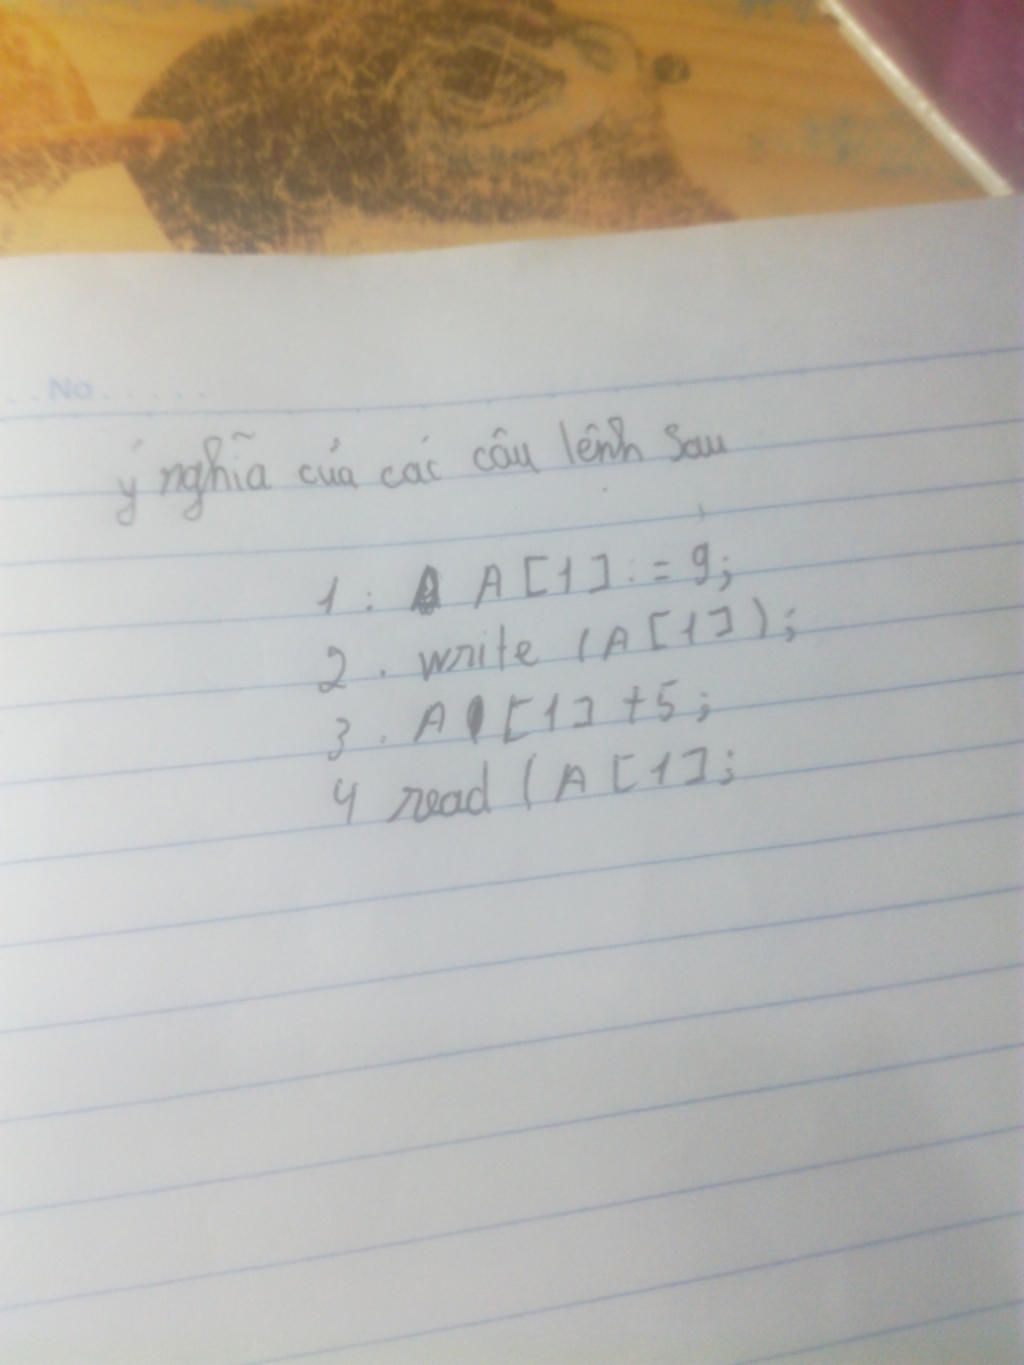 No
ý nghĩa của các câu lệnh sau
1: A[1]:=9;
2. write (A[1]);
3. A[1]+5;
4 read (A[1];